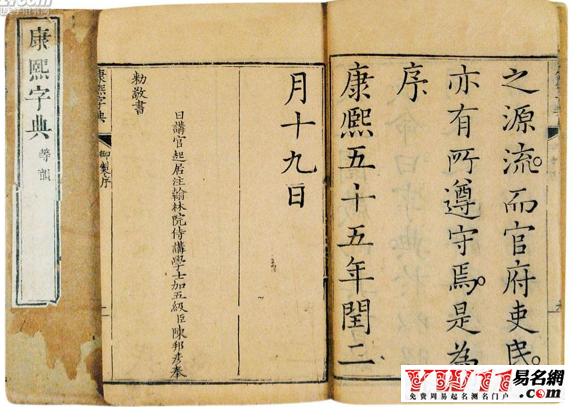 康熙字典 等韻
之源流。而官府吏民。
亦有所遵守焉。是為
序
康熙五十五年閏二
月十九日
日講官起居注翰林院侍講學士加五級臣陳邦彥奉
勅敬書
康熙字典 御製序
易名網
免費周易起名測名門戶